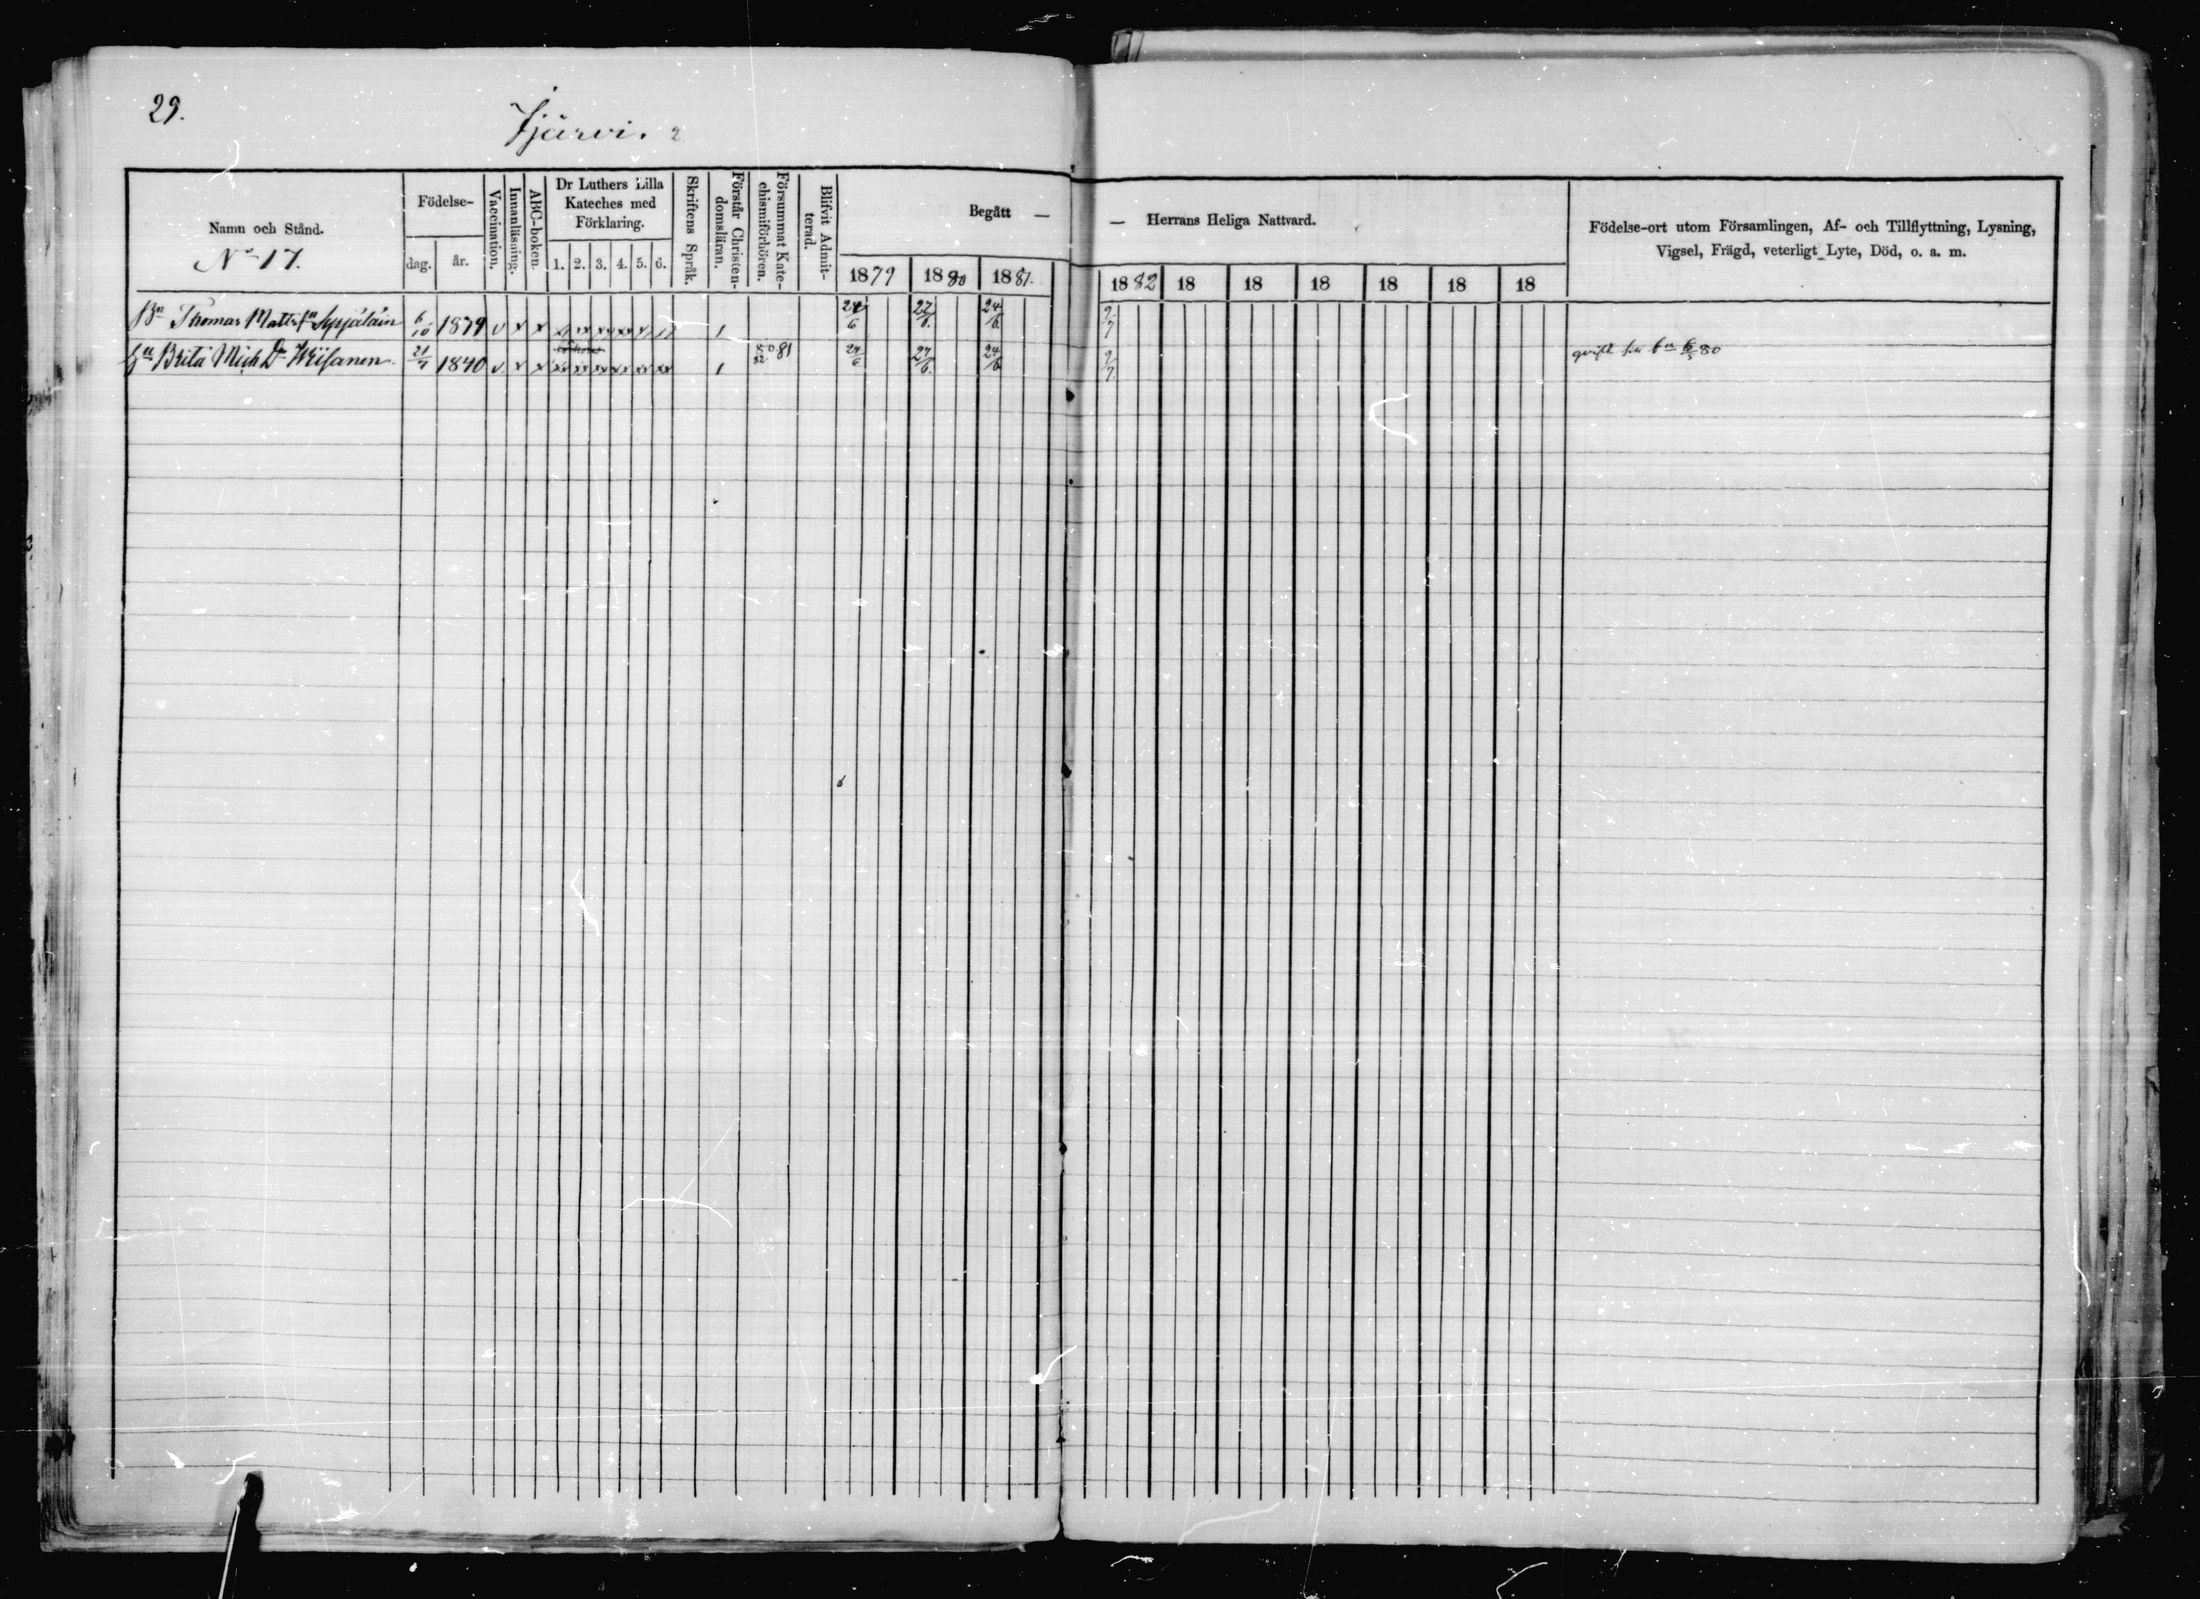 29.
Ijärvi. 2
Namn och Stånd.
No 17.
Födelse-
dag. år.
Vaccination.
Innanläsning.
ABC-boken.
Dr Luthers Lilla
Kateches med
Förklaring.
1. 2. 3. 4. 5. 6.
Skriftens Språk.
Förstår Christen-
domsläran.
Försummat Kate-
chismiförhören.
Blifvit Admit-
terad.
Begått —
1879 1880 1881.
— Herrans Heliga Nattvard.
1882 18 18 18 18 18 18
Födelse-ort utom Församlingen, Af- och Tillflyttning, Lysning,
Vigsel, Frägd, veterligt Lyte, Död, o. a. m.
Bn Thomas Matts fn 6/10 v x x 1 24/6 27/6. 24/6 9/7
Hu Brita Mich Dr 21/7 1840 v x x xx xx xx xx xx xx 1 81 24/6 27/6. 24/6 9/7 80